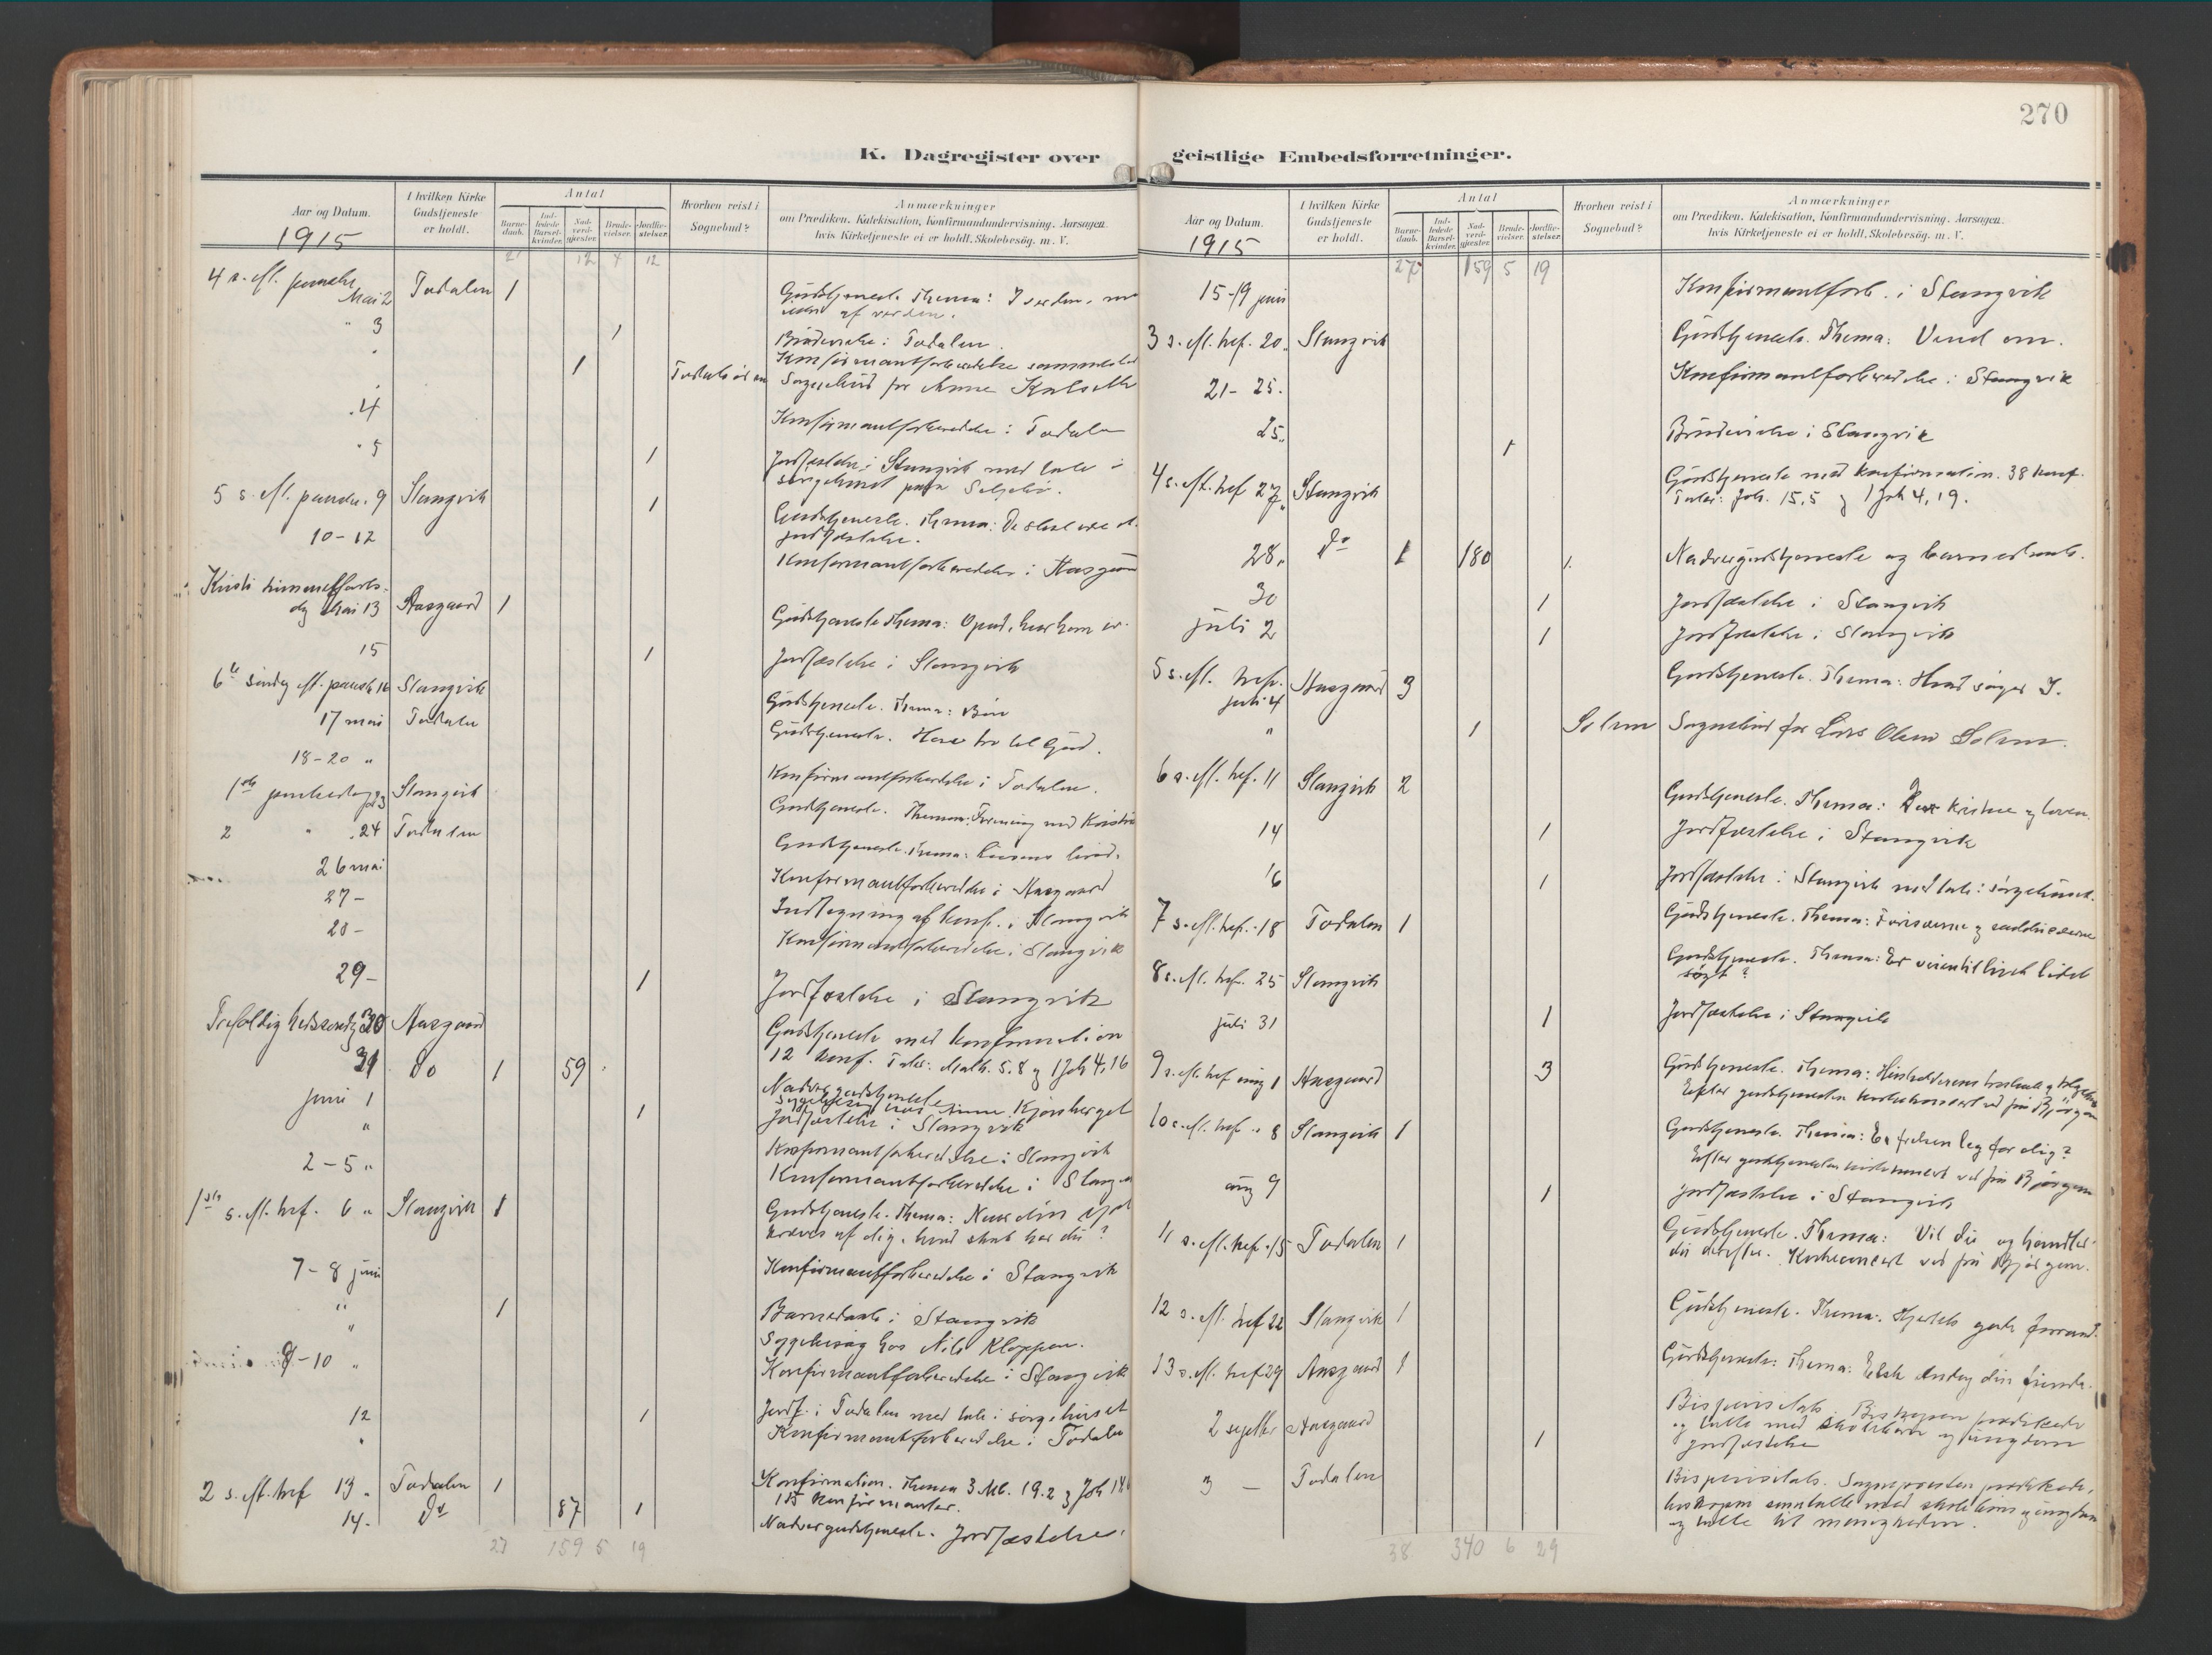 270
K. Dagregister over geistlige Embedsforretninger.
Aar og Datum.
1915
I hvilken Kirke Gudstjeneste er holdt.
Antal
Barnedaab.
Indledede Barselkvinder.
Nadverdgjester.
Brudevielser.
Jordfæstelser.
Hvorhen reist i Sognebud?
Anmærkninger
om Prædiken, Katekisation, Konfirmandundervisning, Aarsagen,
hvis Kirketjeneste ei er holdt, Skolebesög. m. V.
21 12 4 12
Mai 2 Todalen 1 Gudstjeneste. Thema: I verden,
af verden.
" 3 1 Brudevielse i Todalen.
Konfirmantforberedelse sammesteds
1 Sognebud for Anne
" 4 Konfirmantforberedelse i Todalen
" 5 1 Jordfæstelse i Stangvik med tale i
sørgehuset
5 s. eft. paaske 9 Stangvik 1 Gudstjeneste. Thema:
jordfæstelse.
10-12 Konfirmantforberedelse i Aasgaard
Kristi himmelfarts-
dag Mai 13 Aasgaard 1 Gudstjeneste Thema: Opad, hvor han er.
15 1 Jordfæstelse i Stangvik
6te søndag eft. paaske 16 Stangvik Gudstjeneste. Thema: Bøn
17 mai Todalen Gudstjeneste.
18-20 " Konfirmantforberedelse i Todalen.
1ste pinsedag 23 Stangvik Gudstjeneste. Thema: Forening med Kristus
2 " 24 Todalen Gudstjeneste. Thema:
26 mai Konfirmantforberedelse i Aasgaard
27 - Indtegning af konf. i Stangvik
28 - Konfirmantforberedelse i Stangvik
29 - 1 Jordfæstelse i Stangvik
Trefoldighedssøndag 30 Aasgaard Gudstjeneste med konfirmation
12 konf. Tale: Math. 5.8 og 1 Joh 4,16
31 do 1 59 Nadvergudstjeneste
Juni 1 Sygebesøg hos
" 1 Jordfæstelse i Stangvik
Konfirmantforberedelse i Stangvik
2-5 " Konfirmantforberedelse i Stangvik
1ste s. eft. tref. 6 " Stangvik 1 Gudstjeneste. Thema: Naar din sjæl
kræves af dig, hvad skat har du?
7-8 juni Konfirmantforberedelse i Stangvik
" 1 Barnedaab i Stangvik
" Sygebesøg hos Nils Kloppen.
9-10 " Konfirmantforberedelse i Stangvik
12 1 Jordf. i Todalen med tale i sørgehuset
" Konfirmantforberedelse i Todalen
2 s. eft. tref 13 " Todalen 1 Konfirmation. Thema 3 Mb. 19.2 og Joh 14
konfirmanter.
14 - Do 87 1 Nadvergudstjeneste. Jordfæstelse.
27 159 5 19
Aar og Datum.
1915
I hvilken Kirke Gudstjeneste er holdt.
Antal
Barnedaab.
Indledede Barselkvinder.
Nadverdgjester.
Brudevielser.
Jordfæstelser.
Hvorhen reist i Sognebud?
Anmærkninger
om Prædiken, Katekisation, Konfirmandundervisning, Aarsagen,
hvis Kirketjeneste ei er holdt, Skolebesög. m. V.
27 159 5 19
15-19 juni Konfirmantforb. i Stangvik
3 s. eft. tref. 20. Stangvik Gudstjeneste. Thema: Vend om.
21-25. Konfirmantforberedelse i Stangvik
25. 1 Brudevielse i Stangvik
4 s. eft. tref 27 Stangvik Gudstjeneste med konfirmation. 38 konf.
Tale: Joh. 15,5 og 1 Joh 4,19.
28. Do 1 180 Nadvergudstjeneste og barnedaab.
30 1 Jordfæstelse i Stangvik
juli 2 1 Jordfæstelse i Stangvik
5 s. eft. tref.
juli 4 Aasgaard 3 Gudstjeneste. Thema: Hvad søger I.
" 1 Solem Sognebud for Lars Olsen Solem.
6 s. eft. tref. 11 Stangvik 2 Gudstjeneste. Thema: Den kristne og loven.
14 1 Jordfæstelse i Stangvik
16 1 Jordfæstelse i Stangvik med tale i sørgehuset.
7 s. eft. tref. 18 Todalen 1 Gudstjeneste. Thema: Farisæerne og sadducæerne
8 s. eft. tref. 25 Stangvik Gudstjeneste. Thema: Er veien til livet lidet
søgt?
juli 31 1 Jordfæstelse i Stangvik
9 s. eft. tref aug 1 Aasgaard 3 Gudstjeneste. Thema: Husholderens
Efter gudstjenesten kirkekonsert ved frk Bjørgum
10 s. eft. tref. " 8 Stangvik 1 Gudstjeneste. Thema: Er frelsen leg for dig?
Efter gudstjenesten kirkekonsert ved frk Bjørgum
aug 9 1 Jordfæstelse i Stangvik
11 s. eft. tref. 15 Todalen 1 Gudstjeneste. Thema: Vil du og handler
du derefter. Kirkeconcert ved frk Bjørgum.
12 s. eft. tref 22 Stangvik 1 Gudstjeneste. Thema: Hjertets gode forraad.
13 s. eft. tref 29 Aasgaard 1 Gudstjeneste. Thema: Elsk endog din fiende.
2 septbr Aasgaard Bispevisitats. Biskopen prædikede
og talte med skolebørn og ungdom
1 jordfæstelse
3 - Todalen Bispevisitats. Sognepresten prædikede,
biskopen samtalte med skolebørn og ungdom
og talte til menigheden.
38 340 6 29